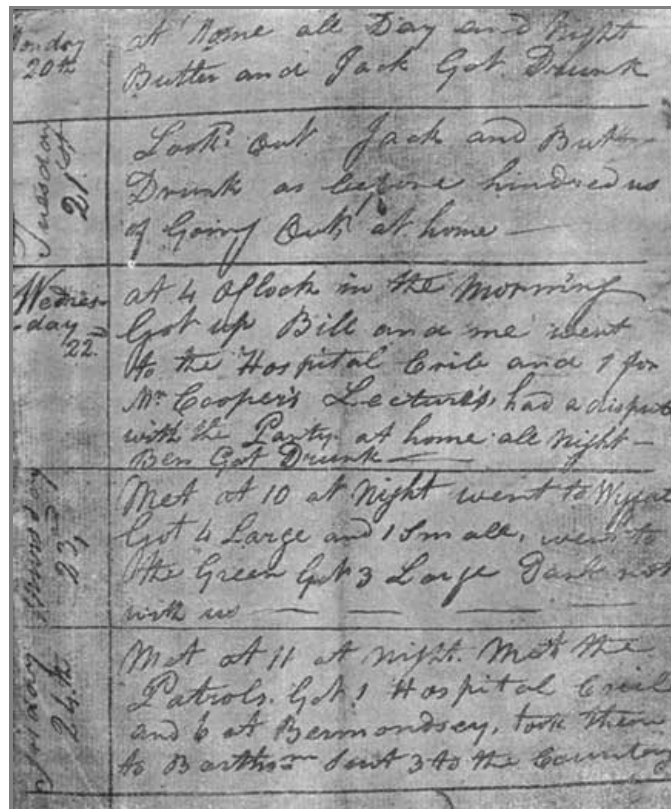 Monday 20th
at Home all Day and Night
Butler and Jack Got Drunk
Tuesday 21st
Look'd out Jack and But
Drunk as before hindred us
of Going Out, at home —
Wednes-day 22nd
at 4 Oflock in the Morning
Got up Bill and me went
to the Hospital Crib and 1 for
Mr Cooper's Lectures, had a disput
with the Party at home all night —
Ben Got Drunk —
Thursday 23rd
Met at 10 at Night went to
Got 4 Large and 1 Small, went to
the Green Got 3 Large Dank not
with us — — — —
Friday 24th
Met at 11 at Night. Met the
Patrols. Got 1 Hospital Crib
and 6 at Bermondsey, took them
to Barthom Sent 3 to the Country